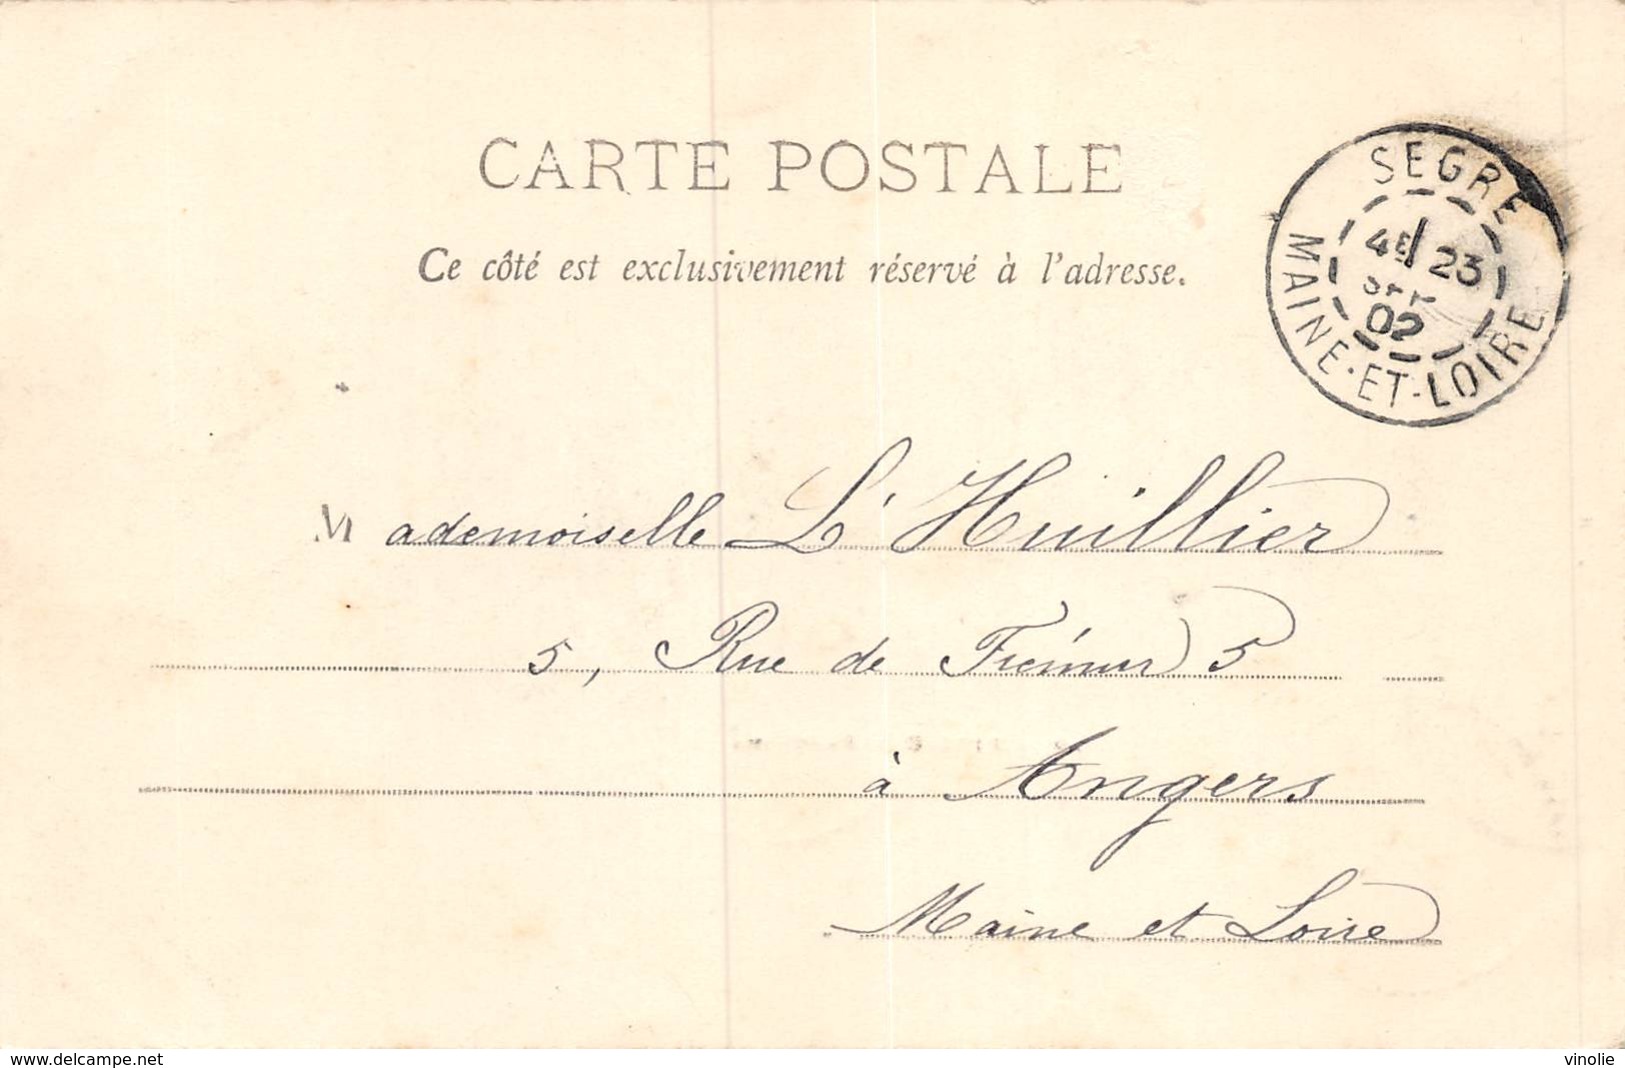 CARTE POSTALE
Ce côté est exclusivement réservé à l'adresse.
SEGRÉ
4E 23
02
MAINE-ET-LOIRE
Mademoiselle L'Huillier
5, Rue de Frémur 5
à Angers
Maine et Loire
www.delcampe.net
vinolie